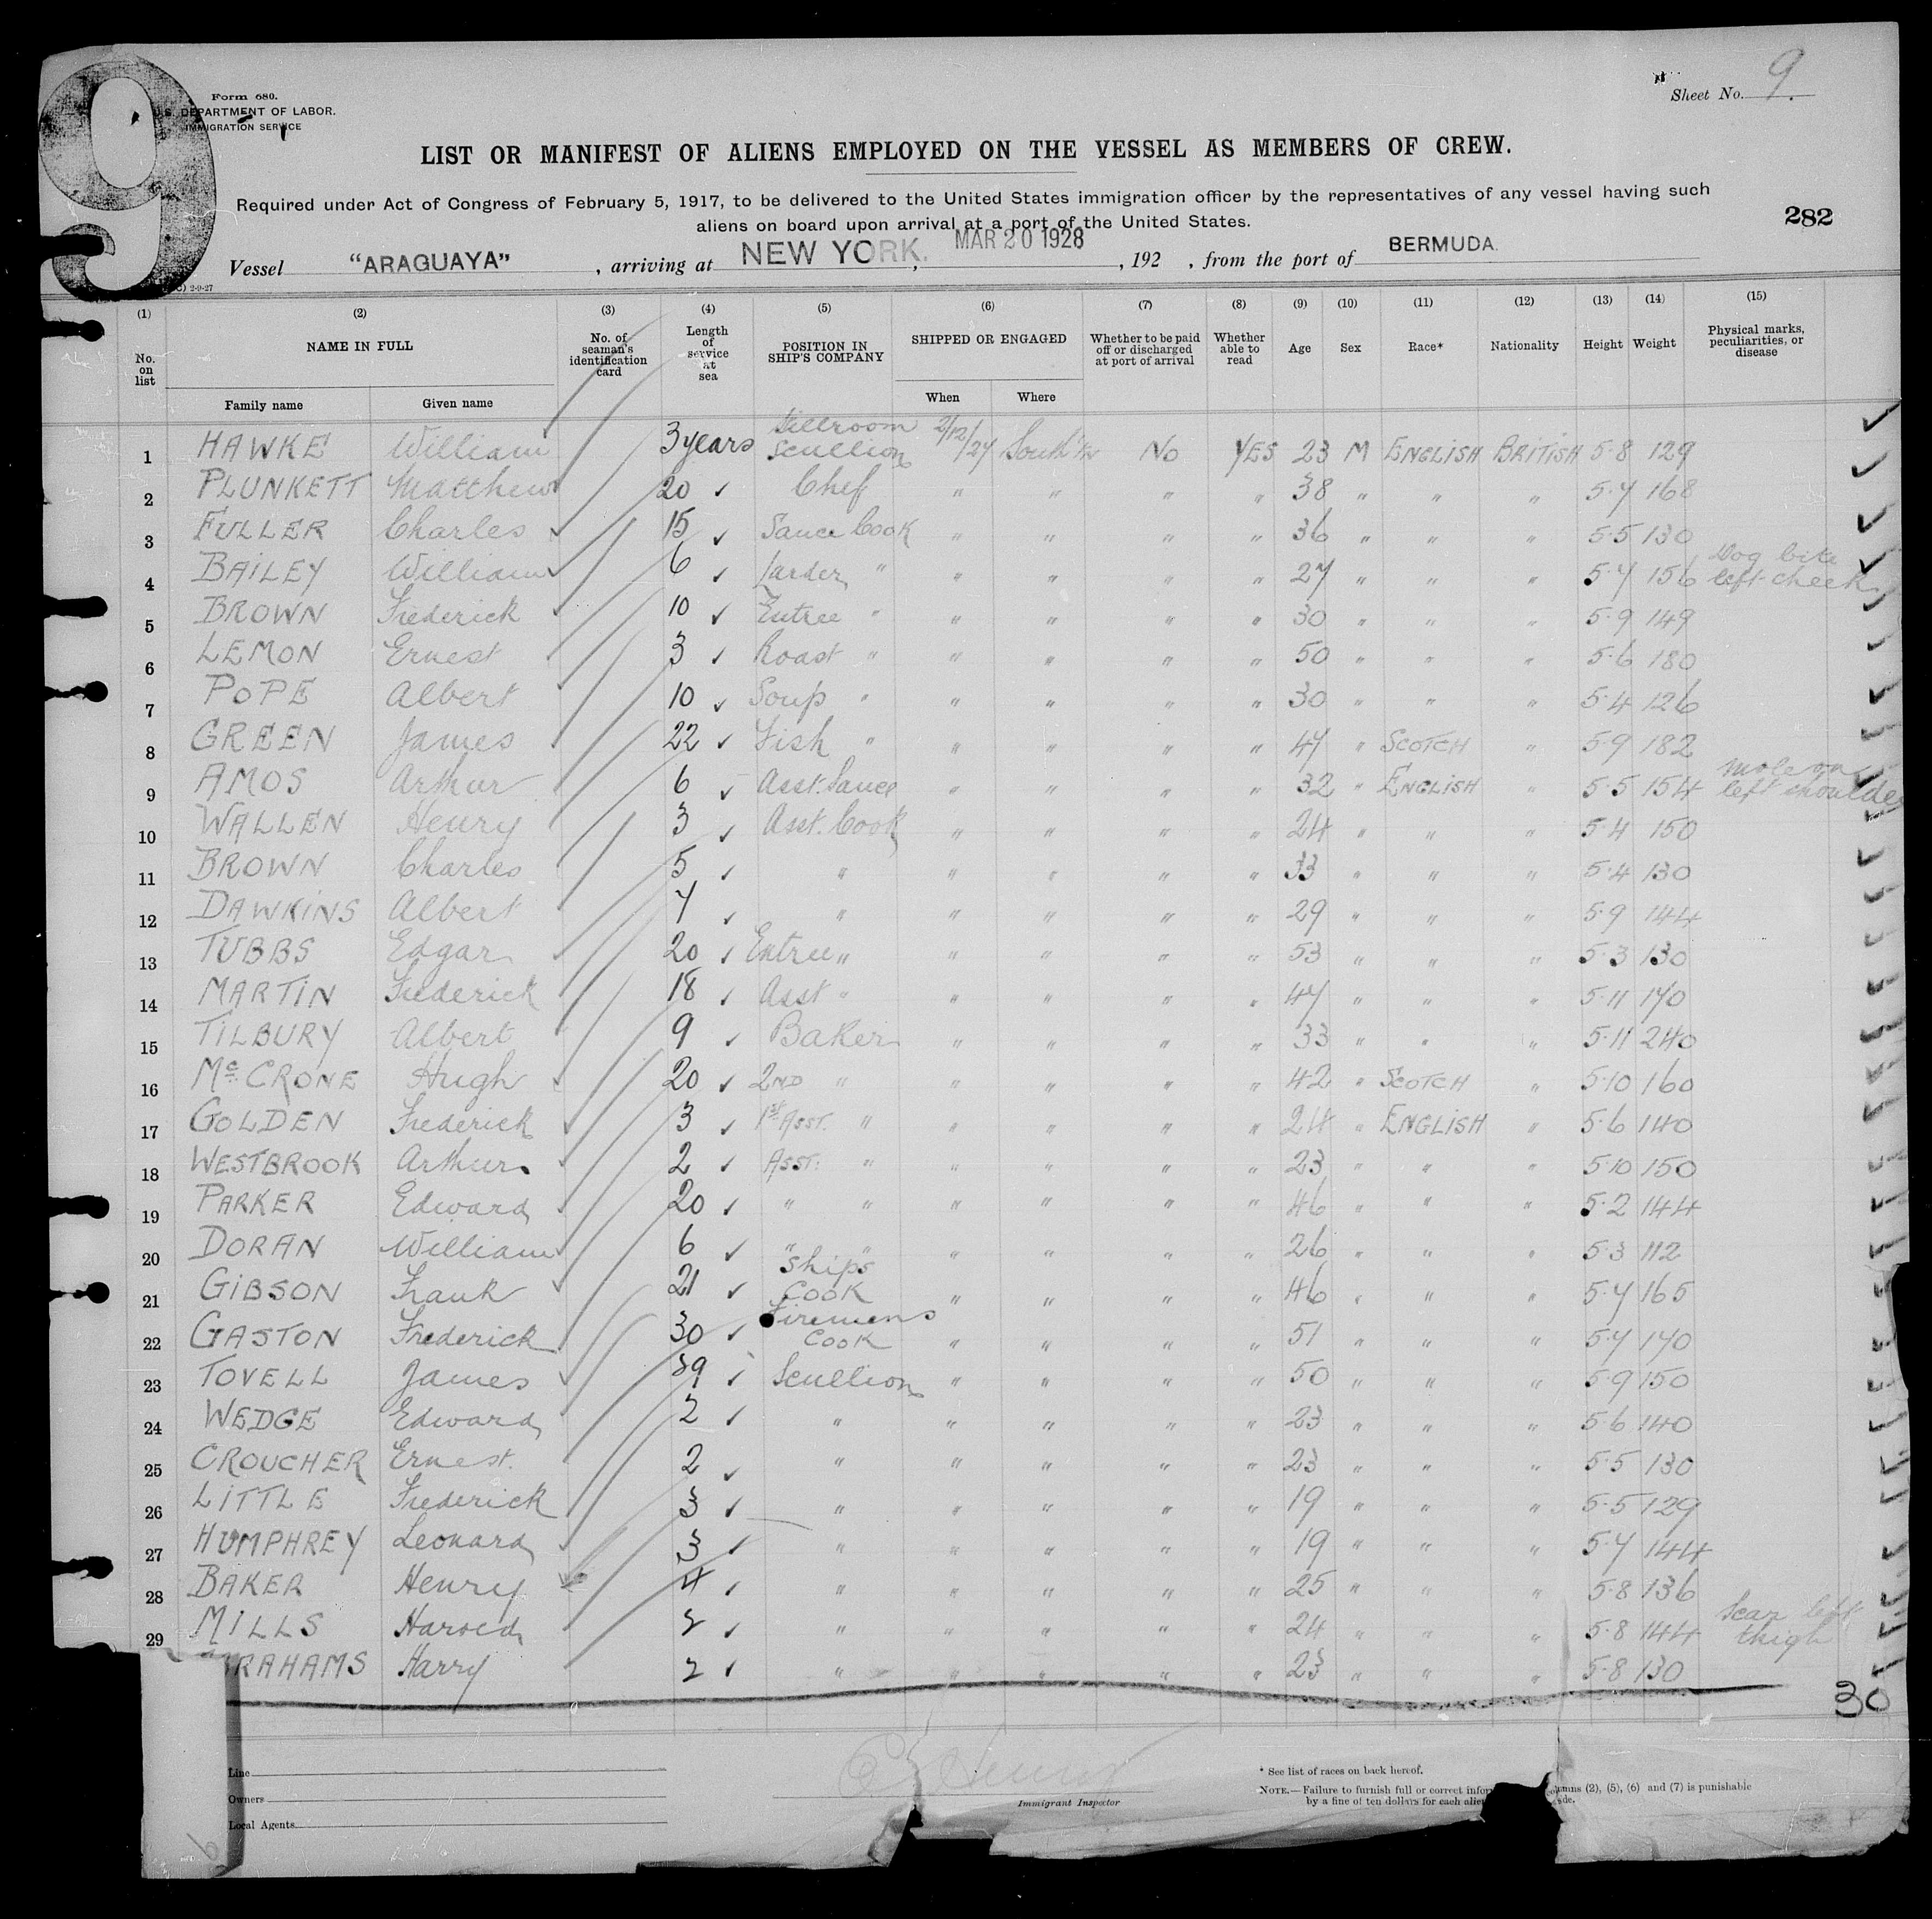 9
Form 680.
U.S. DEPARTMENT OF LABOR.
IMMIGRATION SERVICE
Sheet No. 9.
LIST OR MANIFEST OF ALIENS EMPLOYED ON THE VESSEL AS MEMBERS OF CREW.
Required under Act of Congress of February 5, 1917, to be delivered to the United States immigration officer by the representatives of any vessel having such
aliens on board upon arrival at a port of the United States.
282
Vessel "ARAGUAYA", arriving at NEW YORK., MAR 20 1928, 192 , from the port of BERMUDA.
2-9-27
(1) (2) (3) (4) (5) (6) (7) (8) (9) (10) (11) (12) (13) (14) (15)
No. on list NAME IN FULL No. of seaman's identification card Length of service at sea POSITION IN SHIP'S COMPANY SHIPPED OR ENGAGED Whether to be paid off or discharged at port of arrival Whether able to read Age Sex Race* Nationality Height Weight Physical marks, peculiarities, or disease
Family name Given name When Where
1 HAWKE William 3 years Scullion 2/12/27 No YES 23 M ENGLISH BRITISH 5·8 129
2 PLUNKETT Matthew 20 Chef " " " " 38 " " " 5·7 168
3 FULLER Charles 15 Sauce Cook " " " " 36 " " " 5·5 130
4 BAILEY William 6 Larder " " " " " 27 " " " 5·7 156 Dog bite left cheek
5 BROWN Frederick 10 Entree " " " " " 30 " " " 5·9 149
6 LEMON Ernest 3 Roast " " " " " 50 " " " 5·6 180
7 POPE Albert 10 Soup " " " " " 30 " " " 5·4 126
8 GREEN James 22 Fish " " " " " 47 " SCOTCH " 5·9 182
9 AMOS Arthur 6 Asst. Sauce " " " " 32 " ENGLISH " 5·5 154 mole on left shoulder
10 WALLEN Henry 3 Asst. Cook " " " " 24 " " " 5·4 150
11 BROWN Charles 5 " " " " " 33 " " " 5·4 130
12 DAWKINS Albert 7 " " " " " 29 " " " 5·9 144
13 TUBBS Edgar 20 Entree " " " " " 53 " " " 5·3 130
14 MARTIN Frederick 18 Asst " " " " " 47 " " " 5·11 170
15 TILBURY Albert 9 Baker " " " " 33 " " " 5·11 240
16 McCRONE Hugh 20 2ND " " " " " 42 " SCOTCH " 5·10 160
17 GOLDEN Frederick 3 1st ASST. " " " " " 24 " ENGLISH " 5·6 140
18 WESTBROOK Arthur 2 ASST: " " " " " 23 " " " 5·10 150
19 PARKER Edward 20 " " " " " " 46 " " " 5·2 144
20 DORAN William 6 " " " " " " 26 " " " 5·3 112
21 GIBSON Frank 21 Ships Cook " " " " 46 " " " 5·7 165
22 GASTON Frederick 30 Firemens Cook " " " " 51 " " " 5·7 170
23 TOVELL James Scullion " " " " 50 " " " 5·9 150
24 WEDGE Edward 2 " " " " " 23 " " " 5·6 140
25 CROUCHER Ernest. 2 " " " " " 23 " " " 5·5 130
26 LITTLE Frederick 3 " " " " " 19 " " " 5·5 129
27 HUMPHREY Leonard 3 " " " " " 19 " " " 5·7 144
28 BAKER Henry 4 " " " " " 25 " " " 5·8 136
29 MILLS Harold 2 " " " " " 24 " " " 5·8 144 Scar left thigh
RAHAMS Harry 2 " " " " " 23 " " " 5·8 130
30
Line
Owners
Local Agents
Immigrant Inspector
* See list of races on back hereof.
NOTE.—Failure to furnish full or correct infor umns (2), (5), (6) and (7) is punishable
by a fine of ten dollars for each alien de.